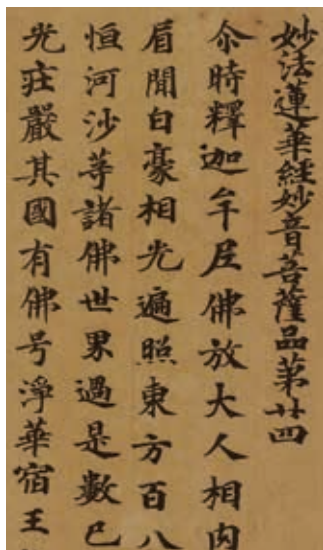 妙法蓮華経妙音菩薩品第廿四
尒時釋迦牟尼佛放大人相肉
眉閒白豪相光遍照東方百八
恒河沙等諸佛世界過是數已
光莊嚴其國有佛号淨華宿王